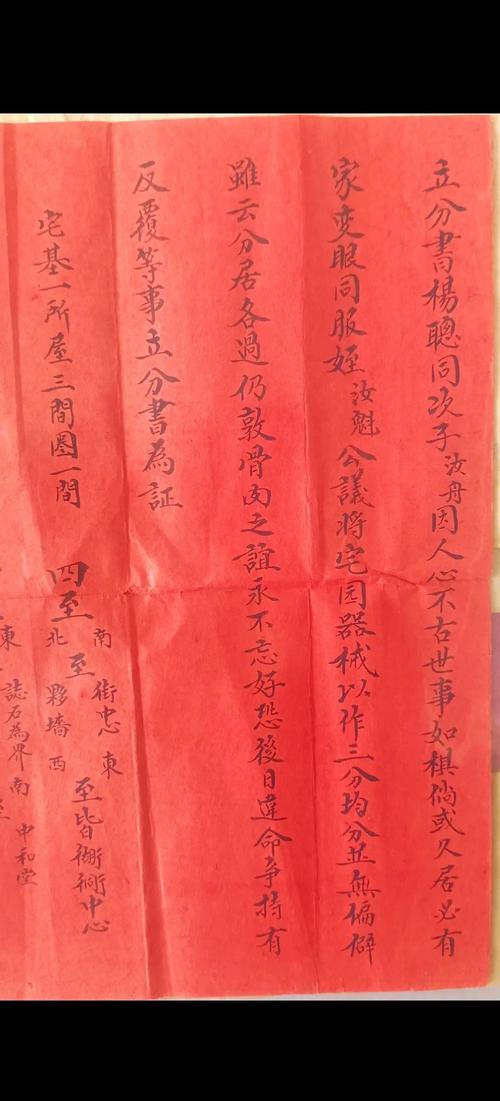 立分書楊聰同次子汝舟因人心不古世事如棋倘或久居必有
家变眼同服姪汝魁公議将宅园器械以作三分均分並無偏僻
雖云分居各過仍敦骨肉之誼永不忘好恐後日違命争持有
反覆等事立分書為証
宅基一所屋三間圈一間
四至
南
北
至
街忠
夥墻
東
西
至皆衚衕中心
東
誌石為界南
中和堂